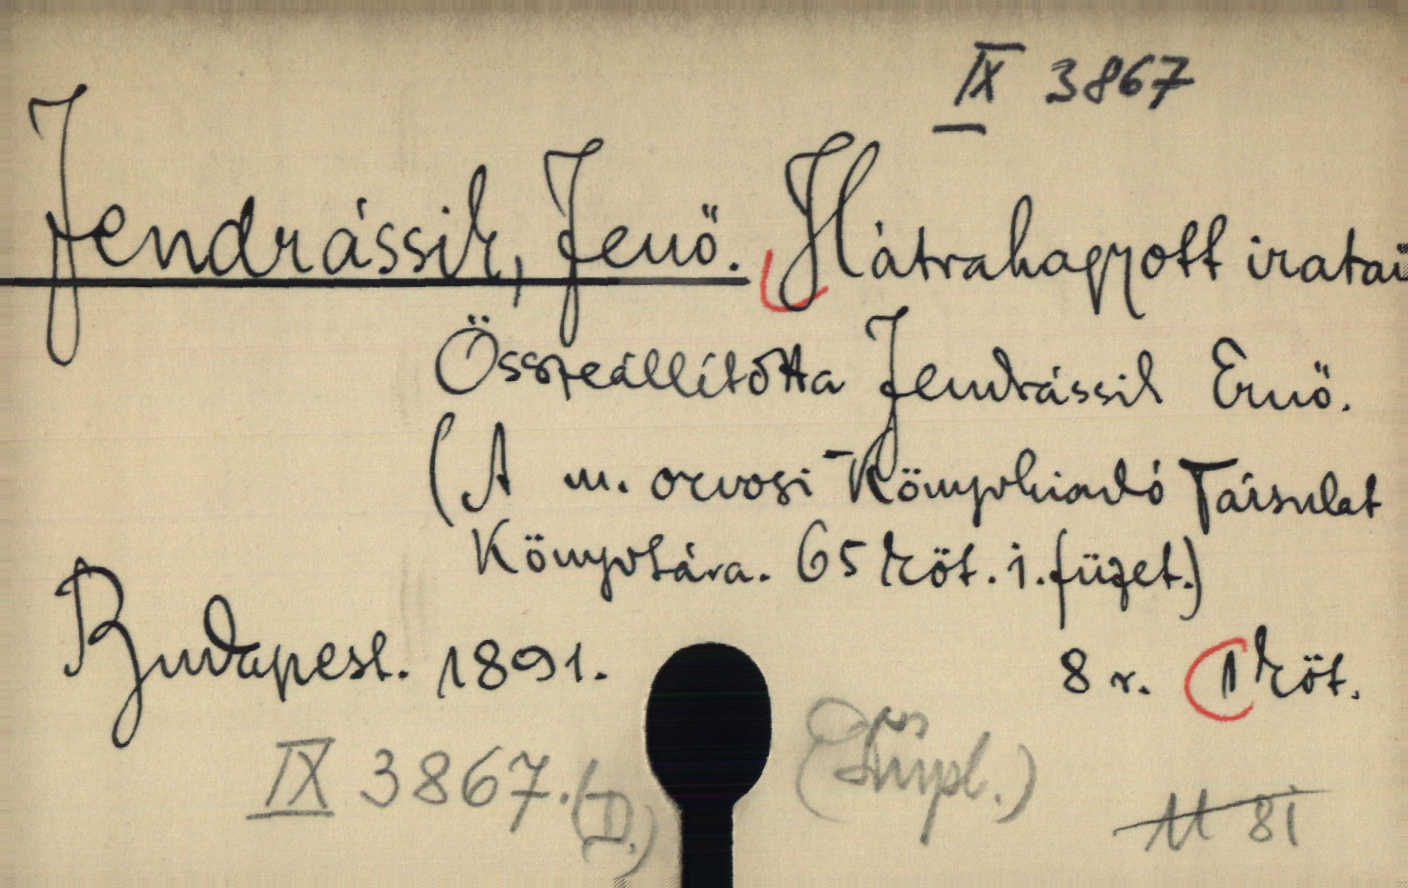 IX 3867
Jendrássik, Jenő. Hátrahagyott iratai
Összeállította Jendrássik Ernő.
(A m. orvosi-Könyvkiadó Társulat
Könyvtára. 65 köt. 1. füzet.)
Budapest. 1891. 8 r. 1 köt.
IX 3867. (D.)
M 81